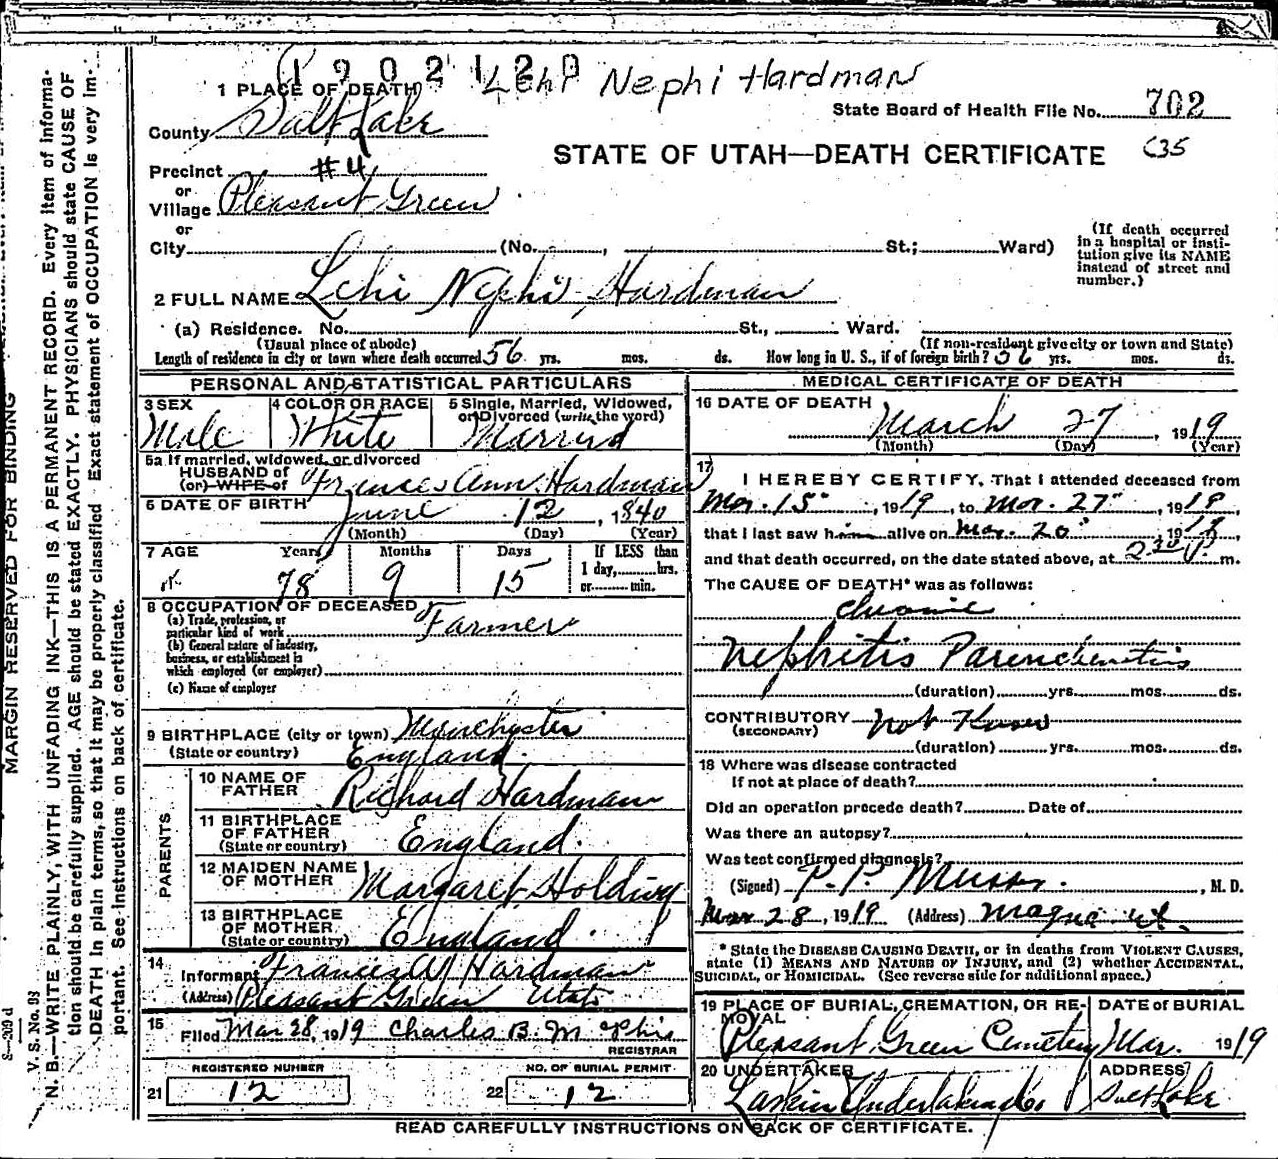 1902120 Lehi Nephi Hardman
1 PLACE OF DEATH
State Board of Health File No. 702
County Salt Lake
STATE OF UTAH—DEATH CERTIFICATE 635
Precinct #4
or
Village Pleasant Green
or
City (No. , St.; Ward)
(If death occurred in a hospital or insti-
tution give its NAME
instead of street and
number.)
2 FULL NAME Lehi Nephi Hardman
(a) Residence. No. St., Ward.
(Usual place of abode) (If non-resident give city or town and State)
Length of residence in city or town where death occurred 56 yrs. mos. ds. How long in U. S., if of foreign birth? 56 yrs. mos. ds.
PERSONAL AND STATISTICAL PARTICULARS
3 SEX 4 COLOR OR RACE 5 Single, Married, Widowed,
or Divorced (write the word)
Male White Married
5a If married, widowed, or divorced
HUSBAND of
(or) WIFE of Frances Ann Hardman
6 DATE OF BIRTH June 12, 1840
(Month) (Day) (Year)
7 AGE Years Months Days If LESS than
1 day, hrs.
or min.
78 9 15
8 OCCUPATION OF DECEASED
(a) Trade, profession, or
particular kind of work Farmer
(b) General nature of industry,
business, or establishment in
which employed (or employer)
(c) Name of employer
9 BIRTHPLACE (city or town) Manchyster
(State or country) England
PARENTS
10 NAME OF
FATHER Richard Hardman
11 BIRTHPLACE
OF FATHER
(State or country) England.
12 MAIDEN NAME
OF MOTHER Margaret Holding
13 BIRTHPLACE
OF MOTHER
(State or country) England.
14
Informant Frances A Hardman
(Address) Pleasant Green Utah
15
Filed Mar 28, 1919 Charles B. M
REGISTRAR
REGISTERED NUMBER NO. OF BURIAL PERMIT
21 12 22 12
MEDICAL CERTIFICATE OF DEATH
16 DATE OF DEATH
March 27, 1919
(Month) (Day) (Year)
17
I HEREBY CERTIFY, That I attended deceased from
Mar. 15, 1919, to Mar. 27, 1919,
that I last saw him alive on Mar. 20 19
and that death occurred, on the date stated above, at 230 m.
The CAUSE OF DEATH* was as follows:
chronic
Nephritis Parenchematus
(duration) yrs. mos. ds.
CONTRIBUTORY not Known
(SECONDARY)
(duration) yrs. mos. ds.
18 Where was disease contracted
If not at place of death?
Did an operation precede death? Date of
Was there an autopsy?
Was test confirmed diagnosis?
(Signed) P. P. Musser, M. D.
Mar 28, 1919 (Address) Magna Ut.
* State the DISEASE CAUSING DEATH, or in deaths from VIOLENT CAUSES,
state (1) MEANS AND NATURE OF INJURY, and (2) whether ACCIDENTAL,
SUICIDAL, or HOMICIDAL. (See reverse side for additional space.)
19 PLACE OF BURIAL, CREMATION, OR RE-
MOVAL DATE OF BURIAL
Pleasant Green Cemetery Mar. 1919
20 UNDERTAKER ADDRESS
Larkin Undertaking Co Salt Lake
READ CAREFULLY INSTRUCTIONS ON BACK OF CERTIFICATE.
MARGIN RESERVED FOR BINDING
S—209 d
V. S. No. 93
N. B.—WRITE PLAINLY, WITH UNFADING INK—THIS IS A PERMANENT RECORD. Every item of informa-
tion should be carefully supplied. AGE should be stated EXACTLY. PHYSICIANS should state CAUSE OF
DEATH in plain terms, so that it may be properly classified. Exact statement of OCCUPATION is very im-
portant. See instructions on back of certificate.